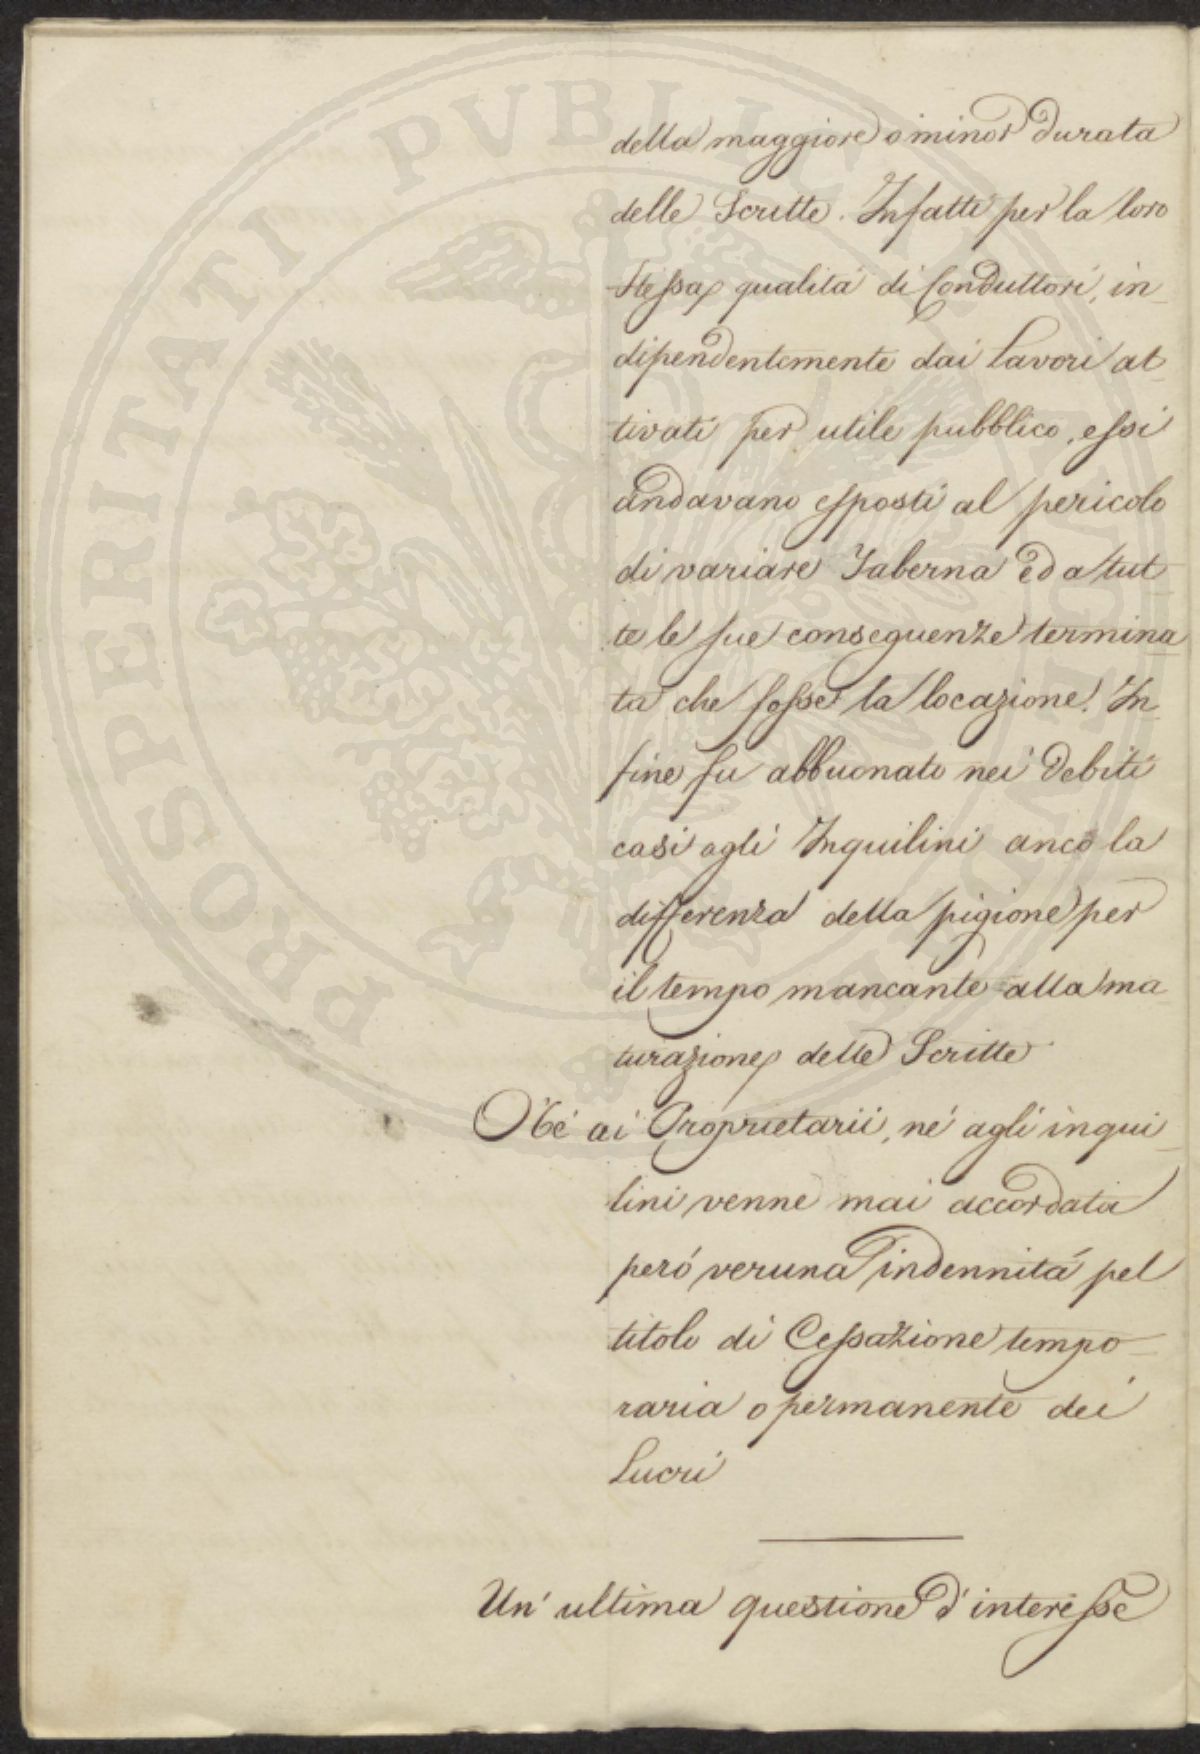 della maggiore o minor durata
delle Scritte. Infatti per la loro
stessa qualità di Conduttori, in_
dipendentemente dai Lavori at_
tivati per utile pubblico, essi
andavano esposti al pericolo
di variare Taberna ed a tut_
te le sue conseguenze termina_
ta che fosse la locazione. In_
fine fu abbuonato nei debiti
casi agli Inquilini anco la
differenza della pigione per
il tempo mancante alla ma_
turazione delle Scritte
Né ai Proprietarii, né agli inqui_
lini venne mai accordata
peró veruna indennitá pel
titolo di Cessazione tempo_
raria o permanente dei
Lucri
Un' ultima questione d'interesse
PROSPERITATI PVBLICAE